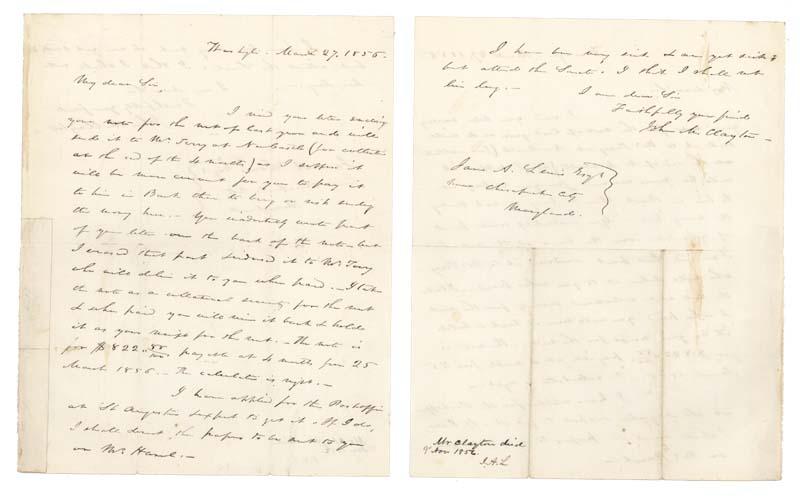 Washgtn. March 27, 1856.
My dear Sir,
I recd your letter enclosing
your note for the rent of last year and will
send it to Mr. Torry at Newcastle (for collection
at the end of the 4 months) as I suppose it
will be more convent for you to pay it
to him in Bank there to bring or risk sending
the money here. - You inadvertently wrote part
of your letter over the back of the note: but
I erased that part & endorsed it to Mr. Torry
who will deliver it to you when paid. - I take
the note as a collateral security for the rent
& when paid you will receive it back & hold
it as your receipt for the rent. - The note is
for $822.55/100 payable at 4 months from 25
March 1856. - The calculation is right. -
I have applied for the Postoffice
at St Augustine & expect to get it. If I do,
I shall direct the papers to be sent to you
or Mr. -
I have been very sick & am yet sick &
but attend the Senate. I think I shall not
live long. -
I am dear Sir
Faithfully your friend
John M. Clayton -
James A. Lewis Esqr
near Chesapeake City
Maryland.
Mr Clayton died
9 Nov 1856.
J.A.L